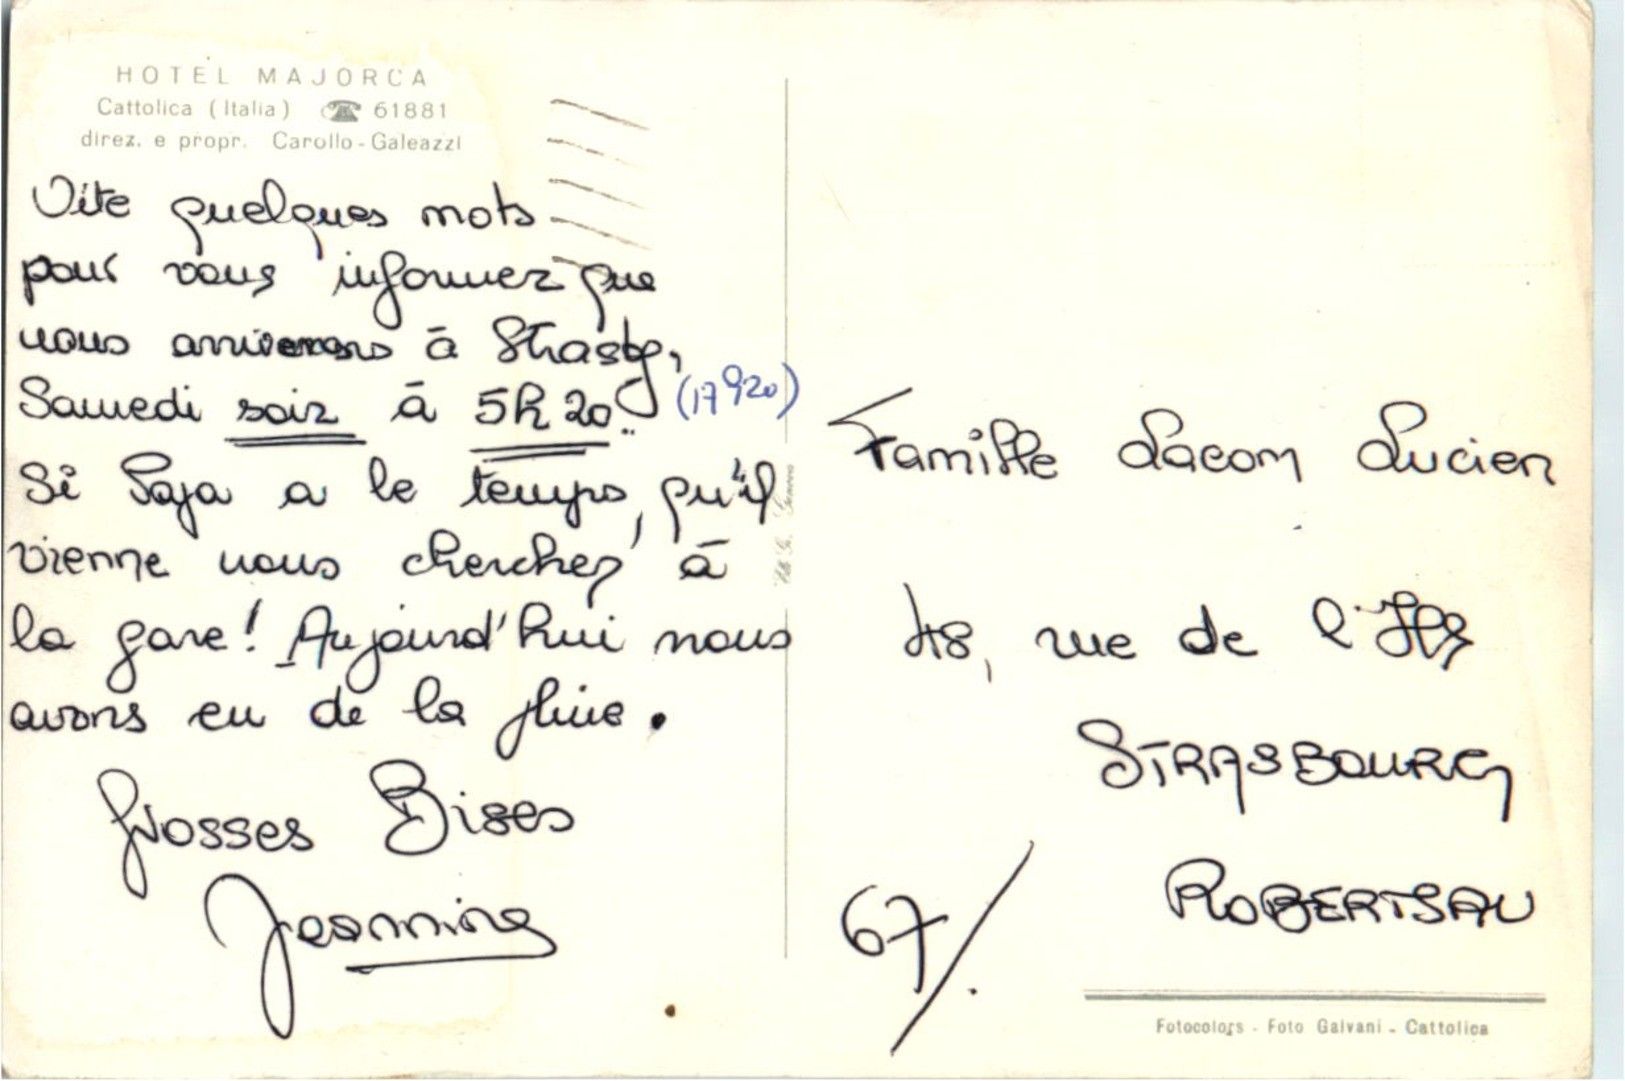 HOTEL MAJORCA
Cattolica (Italia) ☎ 61881
direz. e propr. Carollo - Galeazzi
Vite quelques mots
pour vous informer que
nous arriverons à Strasbg,
Samedi soir à 5h20. (17h20)
Si Papa a le temps, qu'il
vienne nous chercher à
la gare! Aujourd'hui nous
avons eu de la pluie.
Grosses Bises
Jeannine
Famille Lacom Lucien
48, rue de l'Ill
STRASBOURG
ROBERTSAU
67/
Fotocolors - Foto Galvani - Cattolica